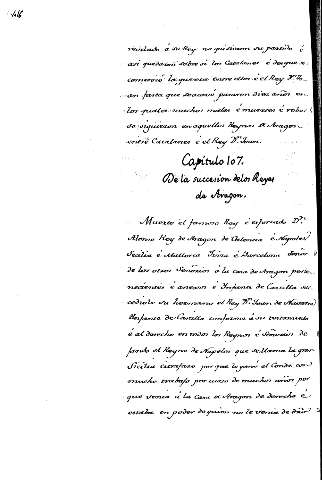 vinlada á su Rey no quisieron su partida é
así quedaron sobre si los Catalanes é desque se
comenzó la guerra entre ellos é el Rey Dn. Ju-
an fasta que se acavó pasaron diez años en
los quales muchos males é muertes é robos
se siguieron en aquellos Reynos de Aragon
entre Catalanes é el Rey Dn. Juan.
Capitulo 107.
De la succesion de los Reyes
de Aragon.
Muerto el famoso Rey é esforzado Dn.
Alonso Rey de Aragon de Valencia é Napoles
Secilia é Mallorca Prin é Barcelona Señor
de los otros Señorios á la casa de Aragon perte-
necientes é anexos é Infante de Castilla su-
cedióle su hermano el Rey Dn. Juan de Navarra
Infante de Castilla conforme á su testamento
é al derecho en todos los Reynos é Señorios
fuera el Reyno de Napoles que se llama la gran
Sicilia citrafaro por que lo ganó el Conde con
mucho trabajo por curso de muchos años por
que venia á la casa de Aragon de derecho é
estaba en poder de quien no le venia de dere